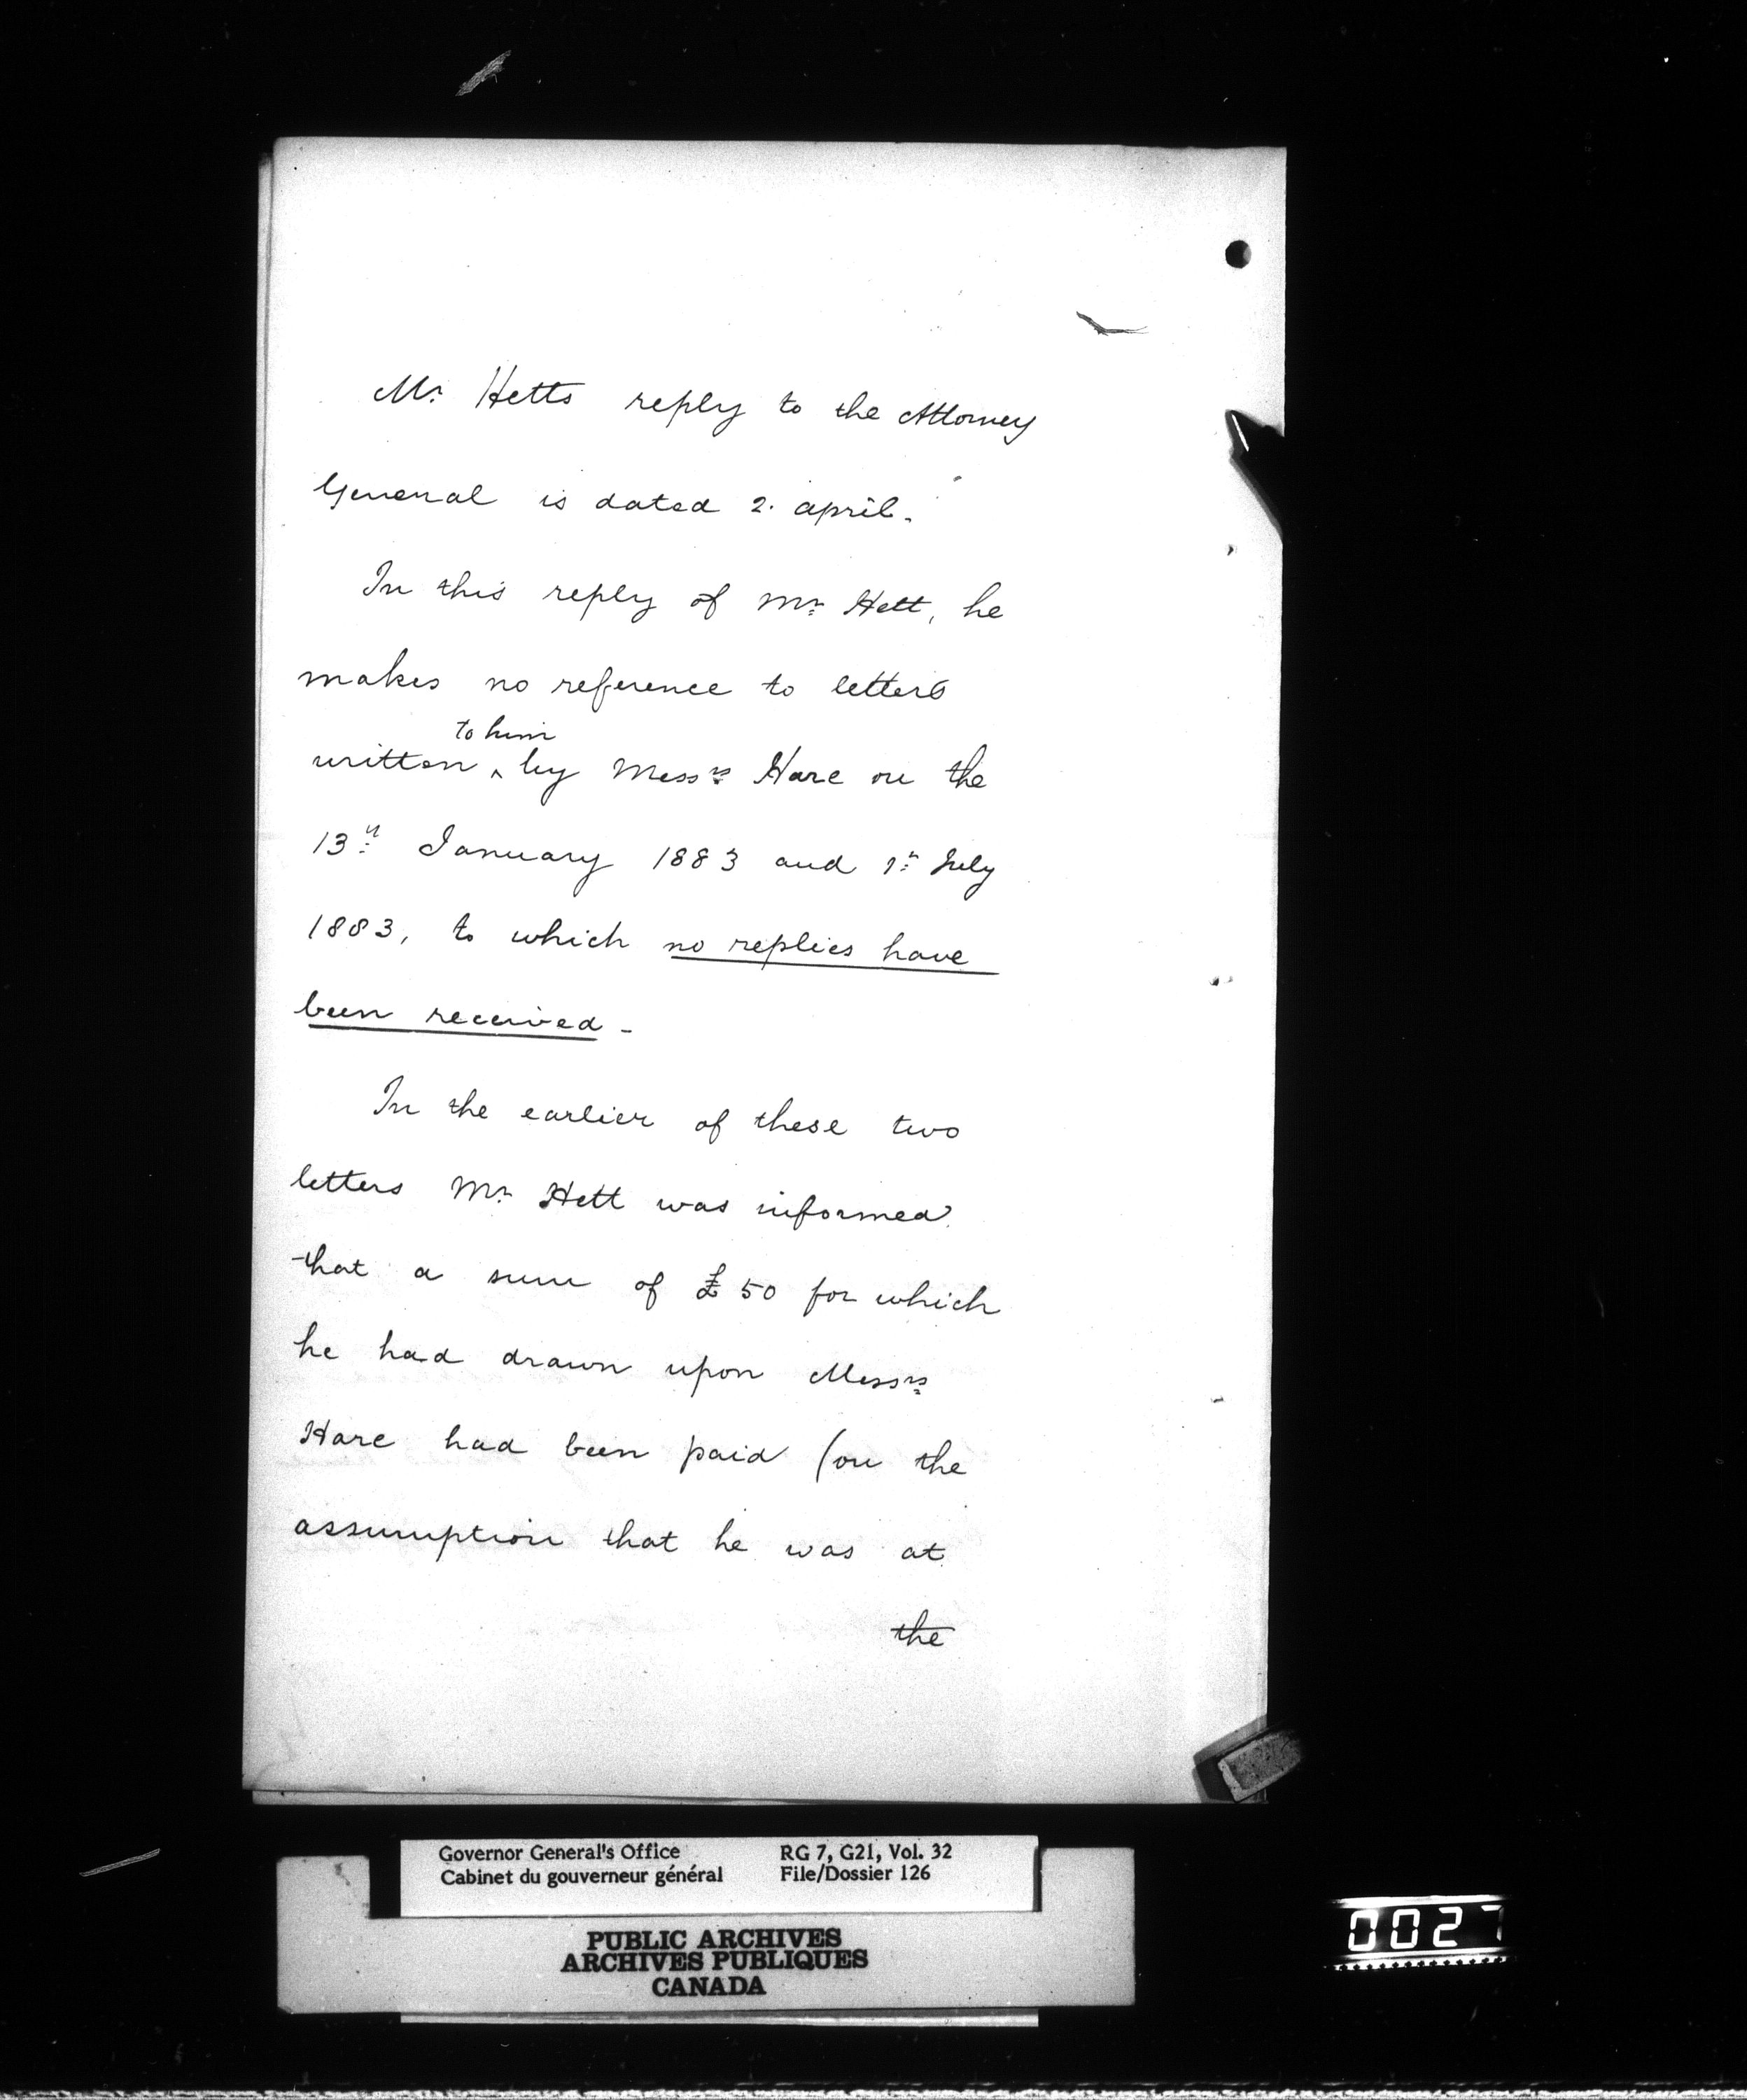 Mr. Hetts reply to the Attorney
General is dated 2. april.
In this reply of Mr Hett, he
makes no reference to letters
to him
written ^ by Messrs Hare on the
13th January 1883 and 1st July
1883, to which no replies have
been received -
In the earlier of these two
letters Mr Hett was informed
that a sum of £50 for which
he had drawn upon Messrs
Hare had been paid (on the
assumption that he was at
the
Governor General's Office RG 7, G21, Vol. 32
Cabinet du gouverneur général File/Dossier 126
PUBLIC ARCHIVES
ARCHIVES PUBLIQUES
CANADA
0027